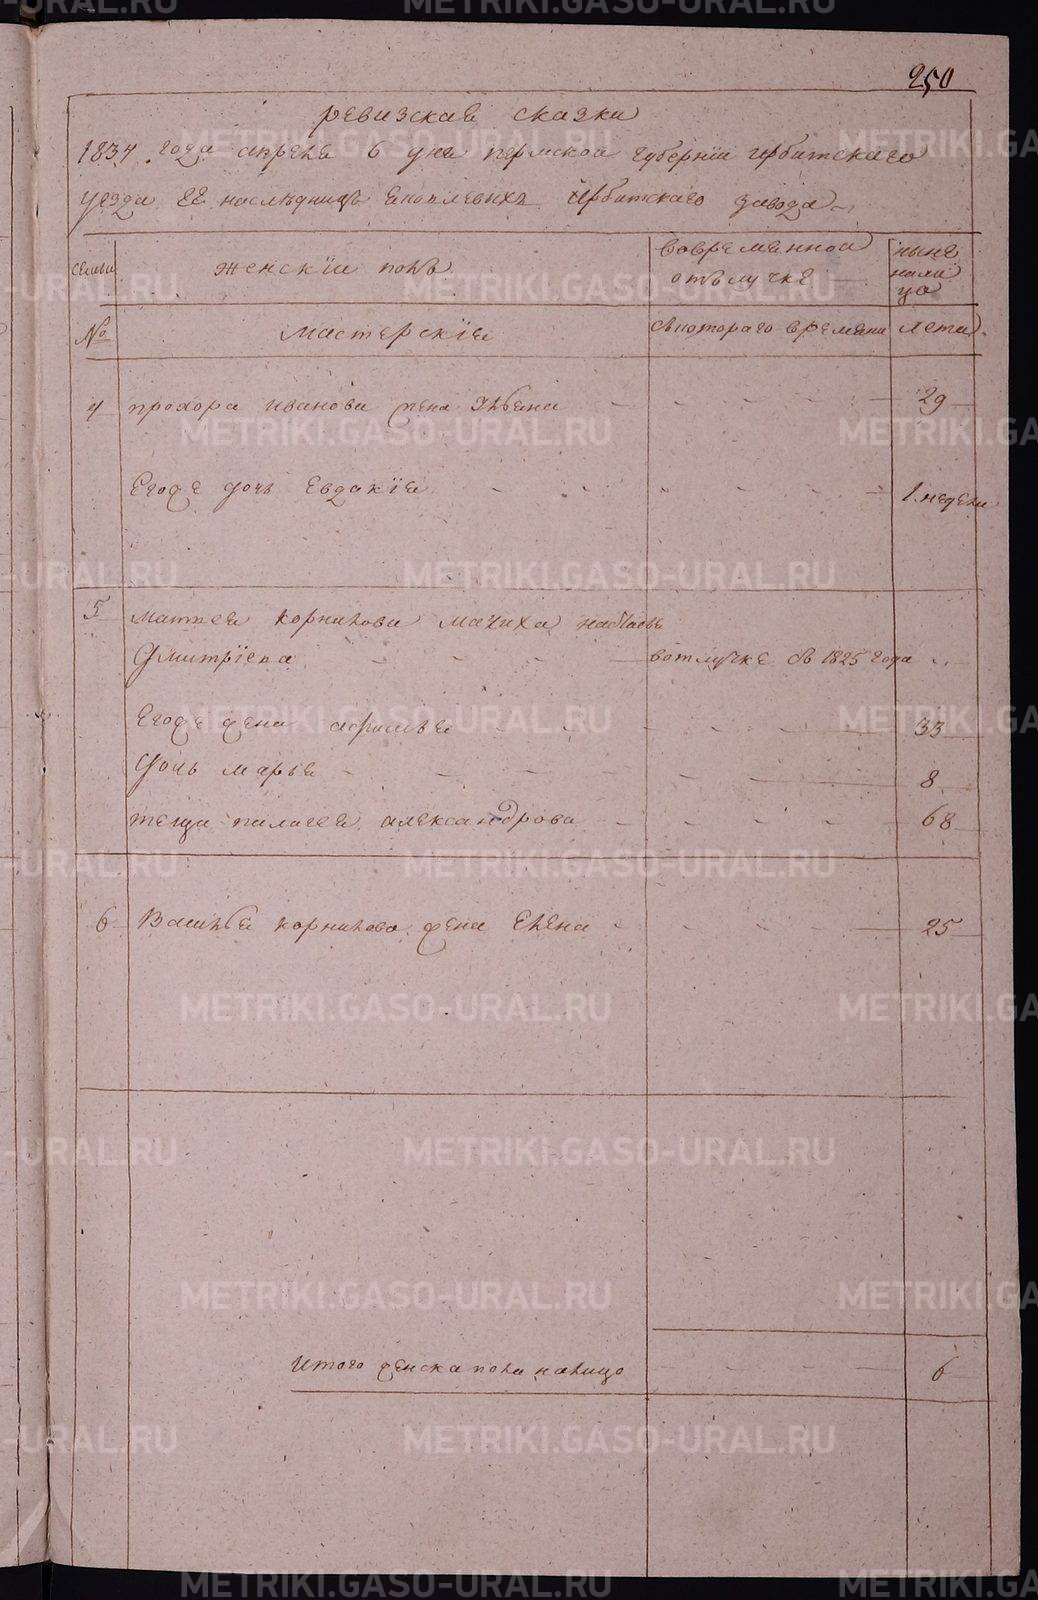 250
ревизская сказка
1834 года апреля 6 дня пермской губернiи ирбитского
уезда ее наслѣдницъ ирбитского завода
семьи женскiи полъ вовременной отълучке ныне налицо
№ мастерскiе съкоторого времени лета
4 прохора иванова жена 29
Егоже дочь Евдокiя 1. недели
5 матвея корнилова мачиха настасья
Дмитрiева вотлучке съ 1825 года
Егоже жена афимья 33
Дочь марья 8
теща пилагея александрова 68
6 Василья корнилова жена Елена 25
итого женска пола налицо 6
METRIKI.GASO-URAL.RU